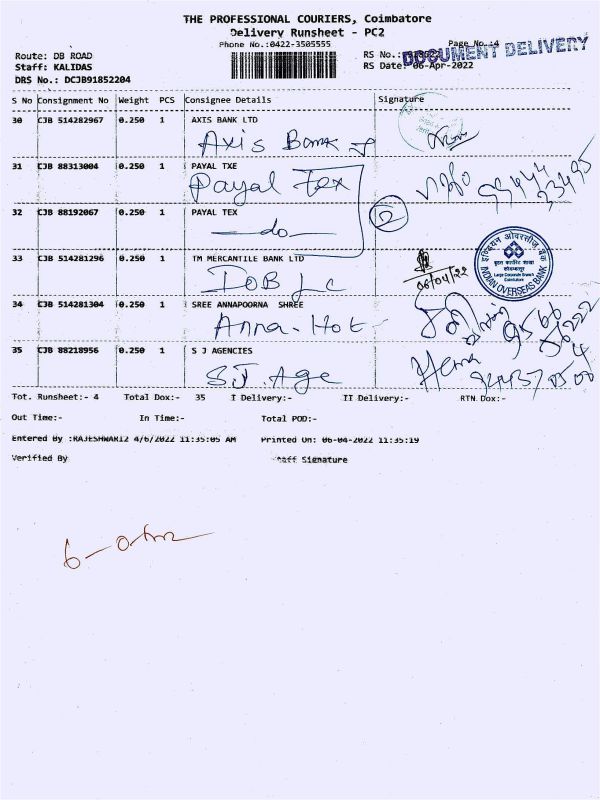 THE PROFESSIONAL COURIERS, Coimbatore
Delivery Runsheet - PC2
Phone No.:0422-3505555
Page No.:4
DOCUMENT DELIVERY
Route: DB ROAD
RS No.:
Staff: KALIDAS
RS Date: 06-Apr-2022
DRS No.: DCJB91852204
S No Consignment No Weight PCS Consignee Details Signature
30 CJB 514282967 0.250 1 AXIS BANK LTD
Axis Bank
31 CJB 88313004 0.250 1 PAYAL TXE
Payal Tex
32 CJB 88192067 0.250 1 PAYAL TEX
2
—do—
33 CJB 514281296 0.250 1 TM MERCANTILE BANK LTD
06/04/22
इण्डियन ओवरसीज़ बैंक
Large Corporate Branch
Coimbatore
INDIAN OVERSEAS BANK
34 CJB 514281304 0.250 1 SREE ANNAPOORNA SHREE
Anna-Hot-
35 CJB 88218956 0.250 1 S J AGENCIES
SJ. Age
Hema
Tot. Runsheet:- 4 Total Dox:- 35 I Delivery:- II Delivery:- RTN Dox:-
Out Time:- In Time:- Total POD:-
Entered By :RAJESHWARI2 4/6/2022 11:35:05 AM Printed On: 06-04-2022 11:35:19
Verified By Staff Signature